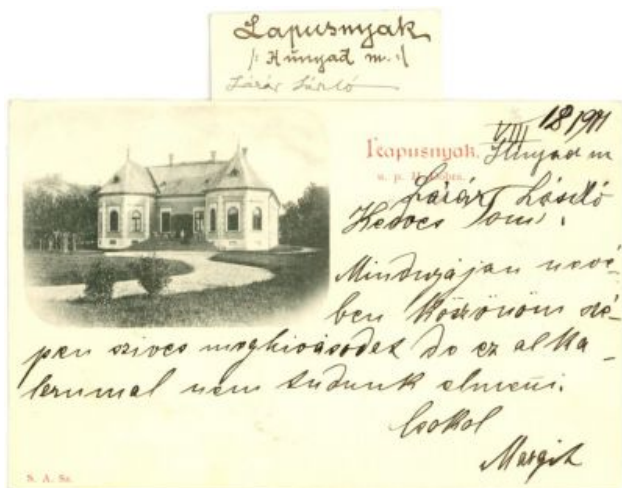 Lapusnyak
/: Hunyad m. :/
Lázár László
VIII 18 1911
Lapusnyak, Hunyad m
u. p. N. Dobra.
Lázár László
Kedves Tomi!
Mindnyájan nevé-
ben köszönöm szé-
pen szives meghivásodat de ez alka-
lommal nem tudunk elmenni.
Csokol
Margit
S. A. Sz.